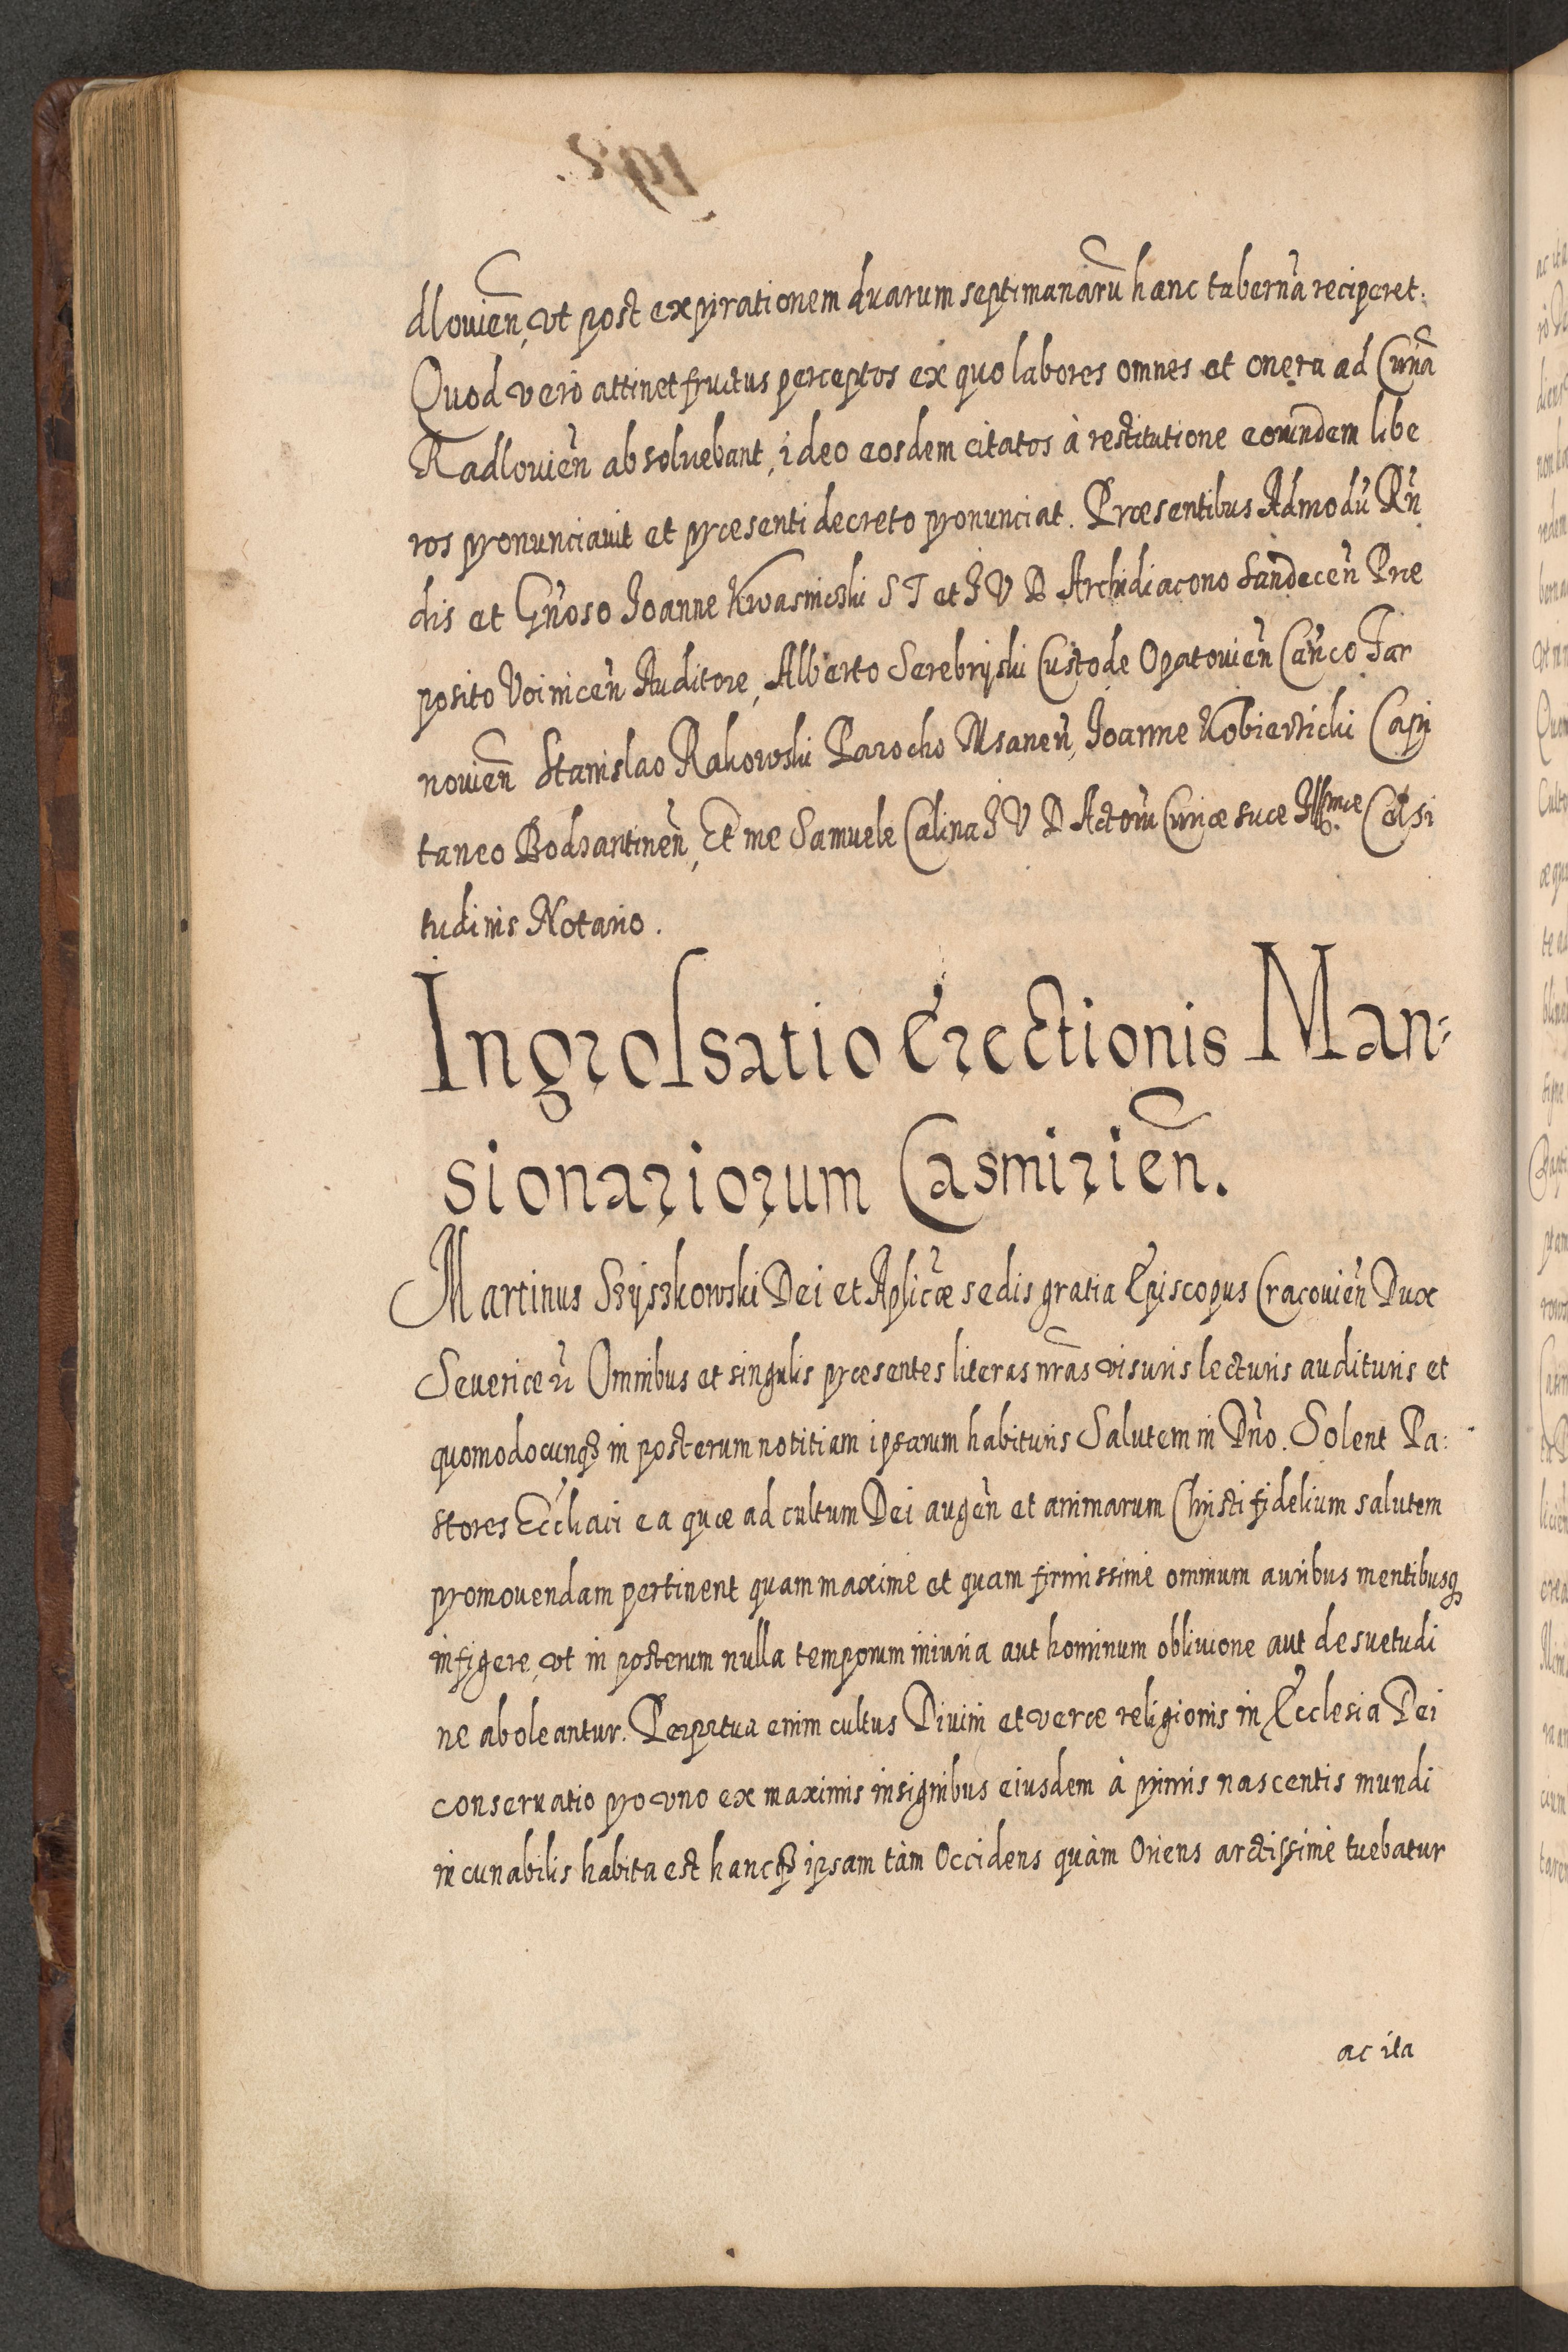 dlouien̄, vt post expirationem duarum septimanarū hanc tabernā reciperet.
Quod vero attinet fructus perceptos ex quo labores omnes et onera ad Curiā
Radlouien̄ absoluebant, ideo eosdem citatos à restitutione eorundem libe
ros pronunciauit et præsenti decreto pronunciat. Præsentibus Admodū Rn̄
dis et Gn̄oso Joanne Kwasnicski S T et J V D Archidiacono Sandecen̄ Præ
posito Voinicen̄ Auditore, Alberto Serebryski Custode Opatouien̄ Can̄co Tar
nouien̄ Stanislao Rakowski Parocho Msanen̄, Joanne Kobiernicki Capi
taneo Bodzantinen̄, Et me Samuele Calina J V D Actorū Curiæ suæ Illmæ Celsi
tudinis Notario.
Ingrossatio Erectionis Man=
sionariorum Casmirien̄.
Martinus Szyszkowski Dei et Aplicæ sedis gratia Episcopus Cracouien̄ Dux
Seuericen̄ Omnibus et singulis præsentes literas nr̄as visuris lecturis audituris et
quomodocunqꝫ in posterum notitiam ipsarum habituris Salutem in Dn̄o. Solent Pa:
stores Ecc̄liaci ea quæ ad cultum Dei augen̄ et animarum Christi fidelium salutem
promouendam pertinent quam maximè et quam firmissimè omnium auribus mentibusqꝫ
infigere, vt in posterum nulla temporum iniuria aut hominum obliuione aut desuetudi
ne aboleantur. Perpetua enim cultus Diuini et veræ religionis in Ecclesia Dei
conseruatio pro vno ex maximis insignibus eiusdem à primis nascentis mundi
incunabilis habita est hancqꝫ ipsam tàm Occidens quàm Oriens arctissimè tuebatur
ac ita